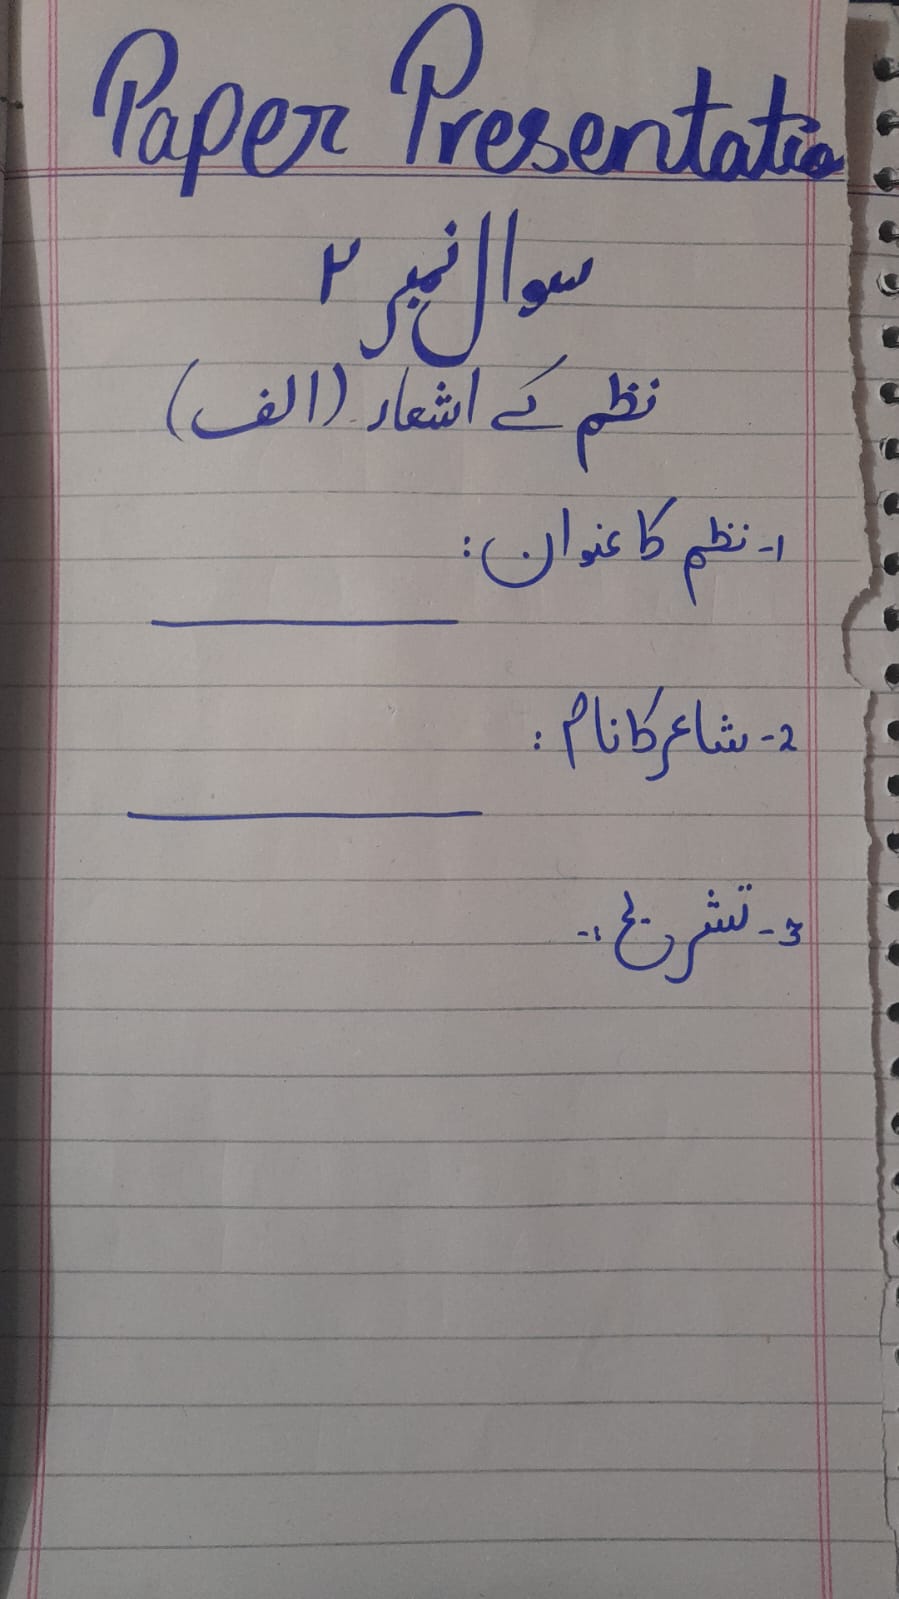 Paper Presentatio
سوال نمبر ۲
نظم کے اشعار (الف)
1- نظم کا عنوان :
2- شاعر کا نام :
3- تشریح :-